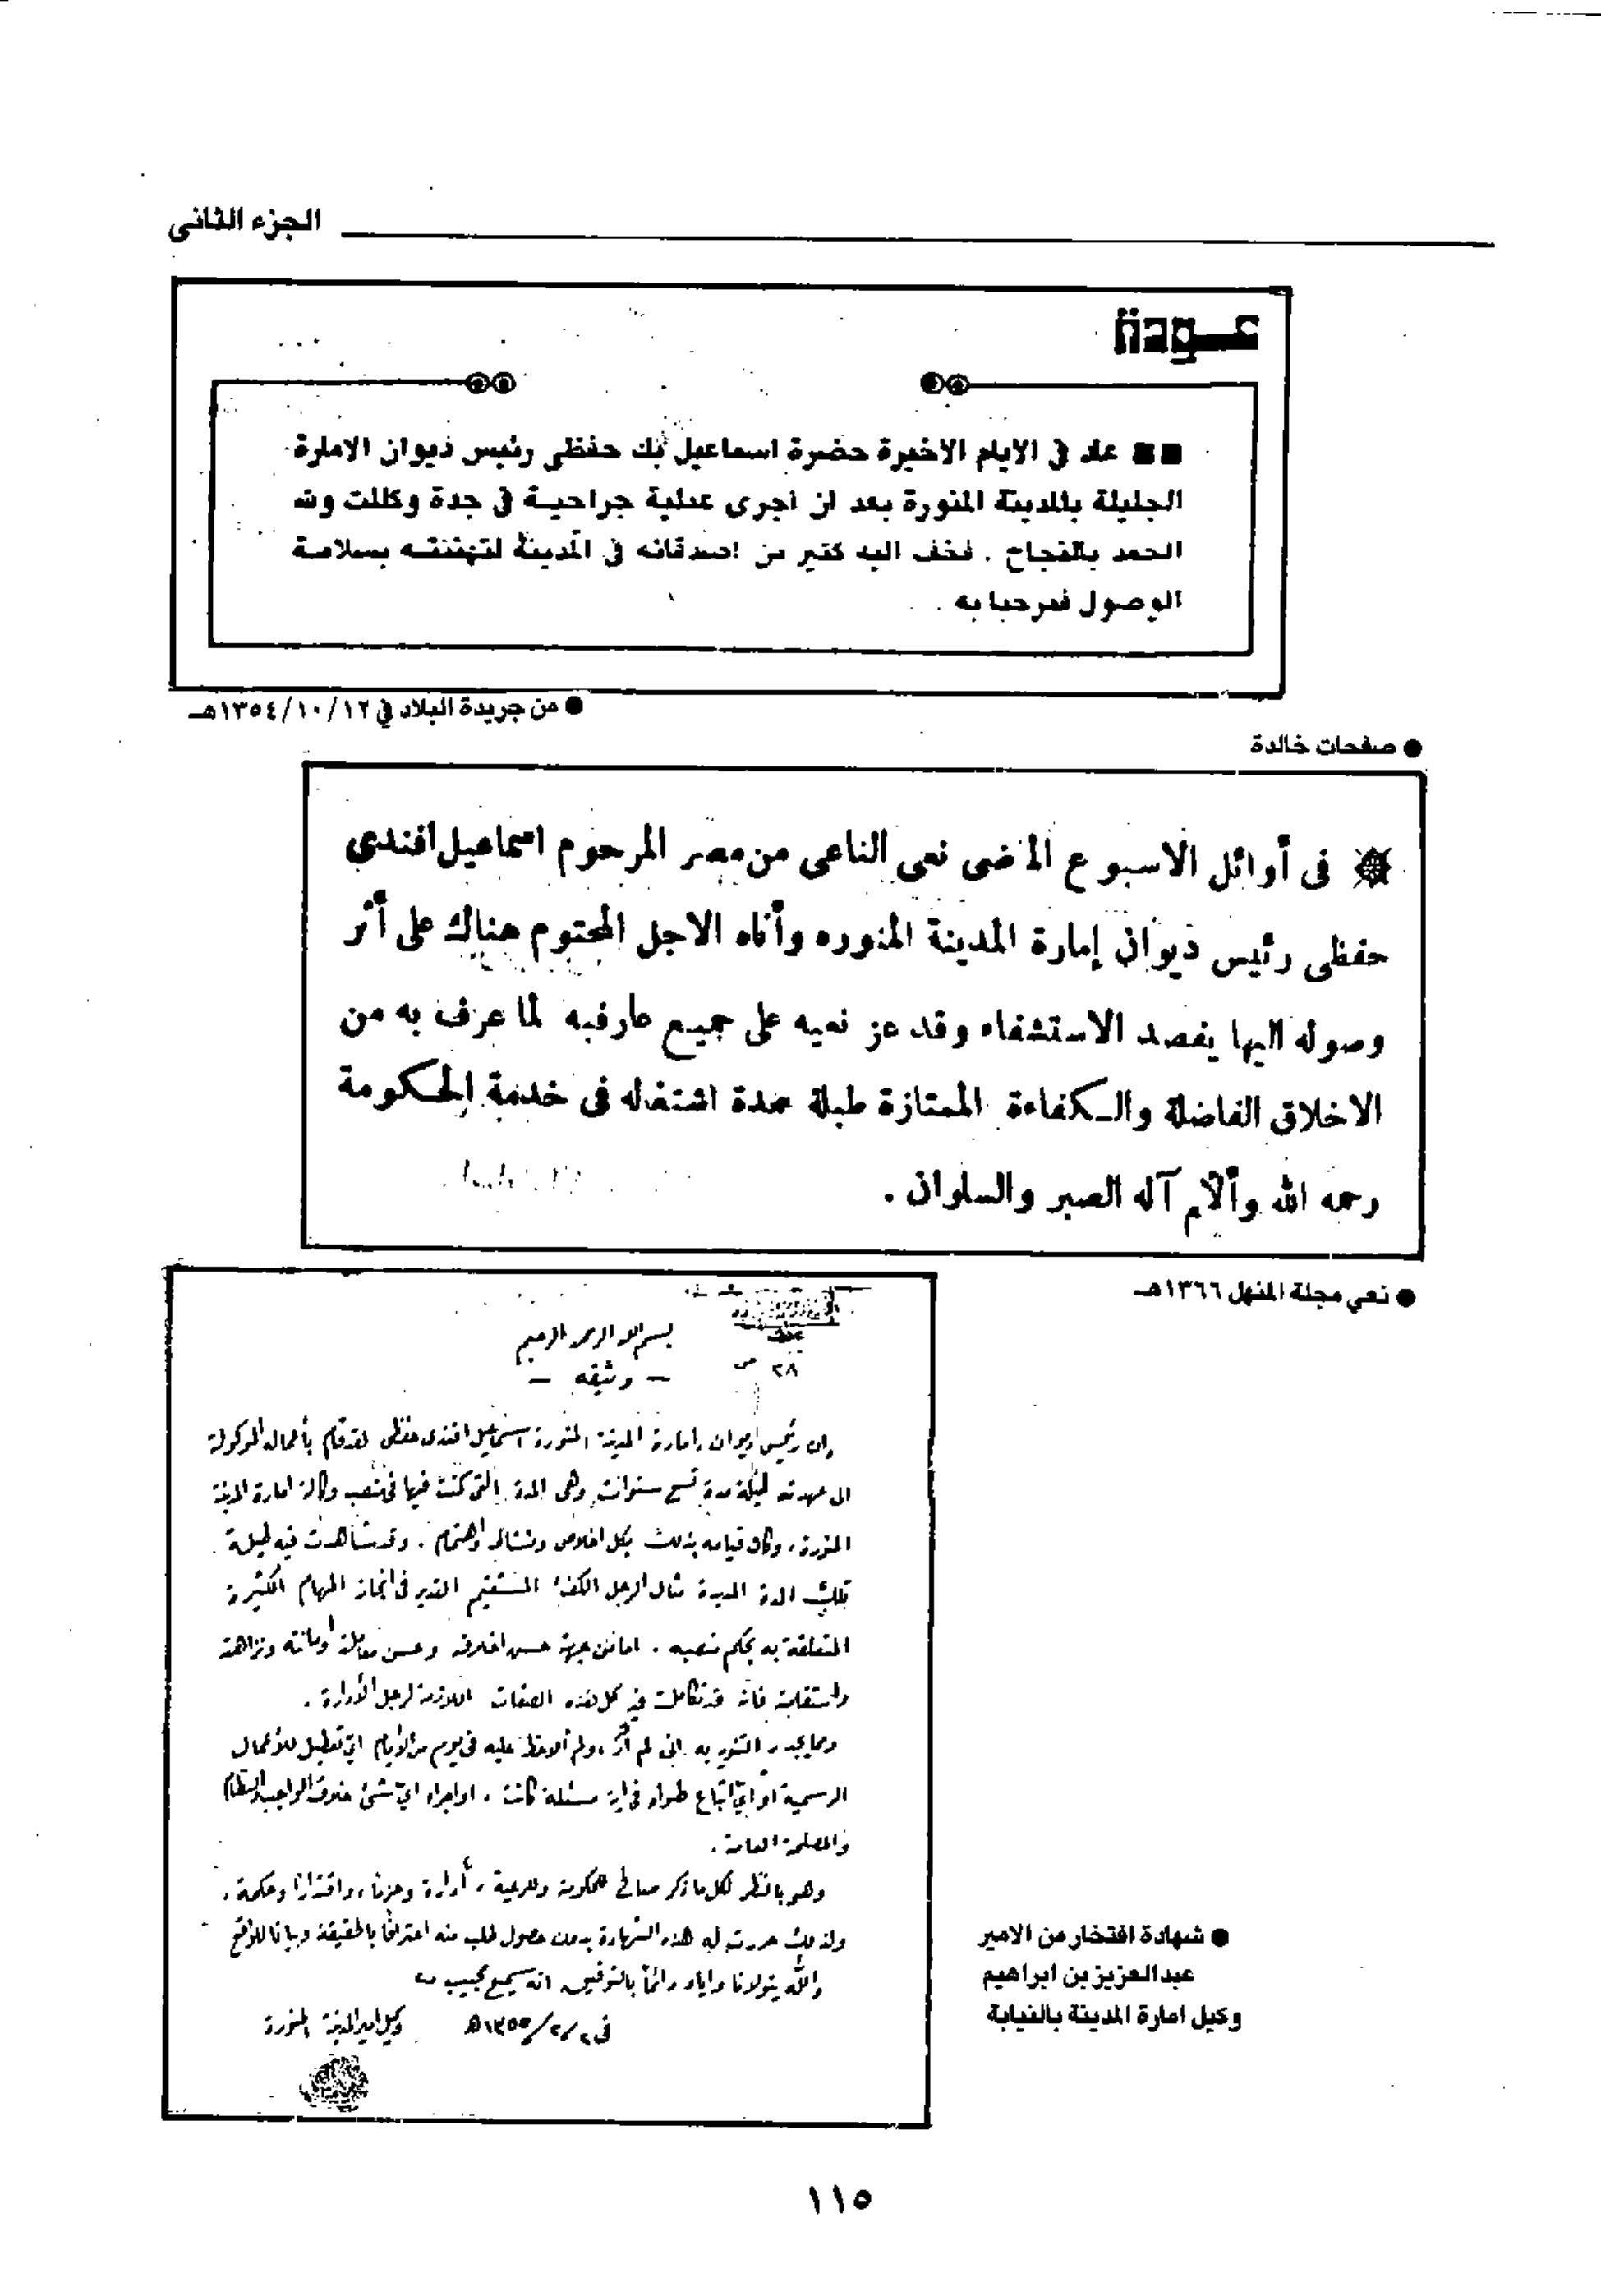 الجزء الثانى
عودة
■■ عاد في الايام الاخيرة حضرة اسماعيل بك حفظى رئيس ديوان الامارة
الجليلة بالمدينة المنورة بعد ان اجرى عملية جراحية في جدة وكللت ولله
الحمد بالنجاح . فخف اليه كثير من اصدقائه في المدينة لتهنئته بسلامة
الوصول فمرحبا به .
● من جريدة البلاد في ١٣٥٤/١٠/١٢هـ
● صفحات خالدة
فى أوائل الاسبوع الماضى نعى الناعى من مصر المرحوم اسماعيل افندى
حفظى رئيس ديوان إمارة المدينة المنوره وأتاه الاجل المحتوم هناك على أثر
وصوله اليها بقصد الاستشفاء وقد عز نعيه على جميع عارفيه لما عرف به من
الاخلاق الفاضلة والكفاءة الممتازة طيلة مدة اشتغاله فى خدمة الحكومة
رحمه الله وألهم آله الصبر والسلوان .
● نعي مجلة المنهل ١٣٦٦هـ
بسم الله الرحمن الرحيم
٢٨
— وثيقه —
ان رئيس ديوان امارة المدينة المنورة اسماعيل افندى حفظى لقد قام بأعماله الموكولة
الى عهدته طيلة مدة تسع سنوات وهى المدة التى كنت فيها فى منصب وكالة امارة المدينة
المنورة ، وكان قيامه بذلك بكل اخلاص ونشاط واهتمام . وقد شاهدت فيه طيلة
تلك المدة المديدة مثال الرجل الكفؤ المستقيم القدير فى انجاز المهام الكثيرة
المتعلقة به بحكم منصبه . اما من جهة حسن اخلاقه وحسن معاملته وامانته ونزاهته
واستقامته فانه قد تكاملت فيه كل هذه الصفات اللازمة لرجل الأدارة .
ومما يجدر التنويه به انى لم أر ، ولم ألاحظ عليه فى يوم من الأيام اي تعطيل للأعمال
الرسمية او اي اتباع هواه فى اية مسئلة كانت ، او اجراء اي شئ خلاف الواجب والنظام
والمصلحة العامة .
وهو بالنظر لكل ما ذكر صالح للحكومة وللرعية ، أدارة وحزما ، واقتدارا وحكمة ،
ولذلك حررت له هذه الشهادة بدون حصول طلب منه اعترافا بالحقيقة وبيانا للواقع
والله يتولانا واياه دائما بالتوفيق انه سميع مجيب
فى ٢/٢/١٣٥٥هـ وكيل امير المدينة المنورة
● شهادة افتخار من الامير
عبدالعزيز بن ابراهيم
وكيل امارة المدينة بالنيابة
١١٥